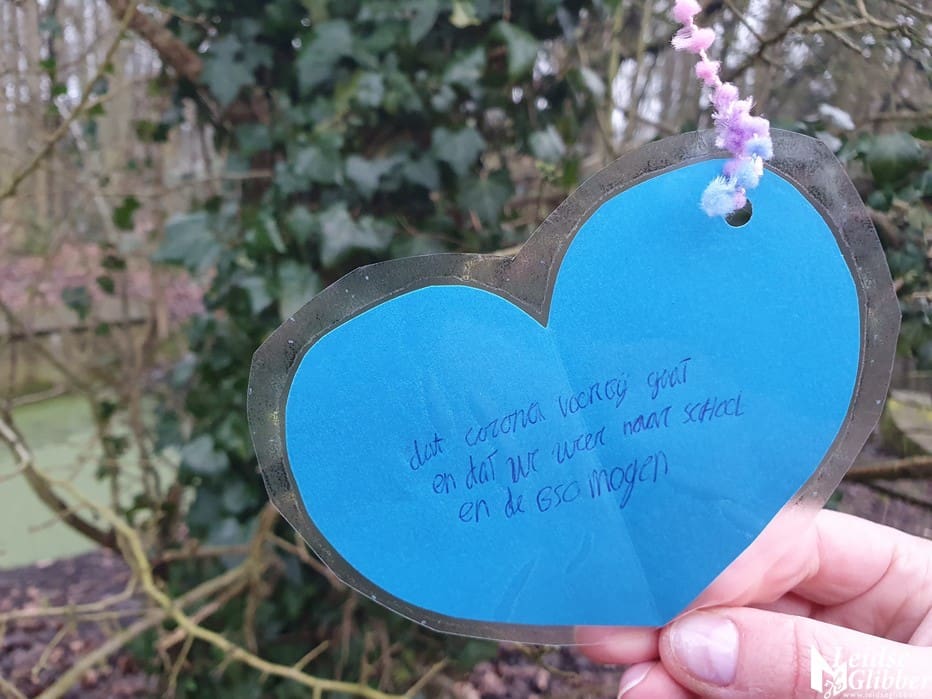 dat corona voorbij gaat
en dat we weer naar school
en de BSO mogen
Leidse
Glibber
www.leidseglibber.nl